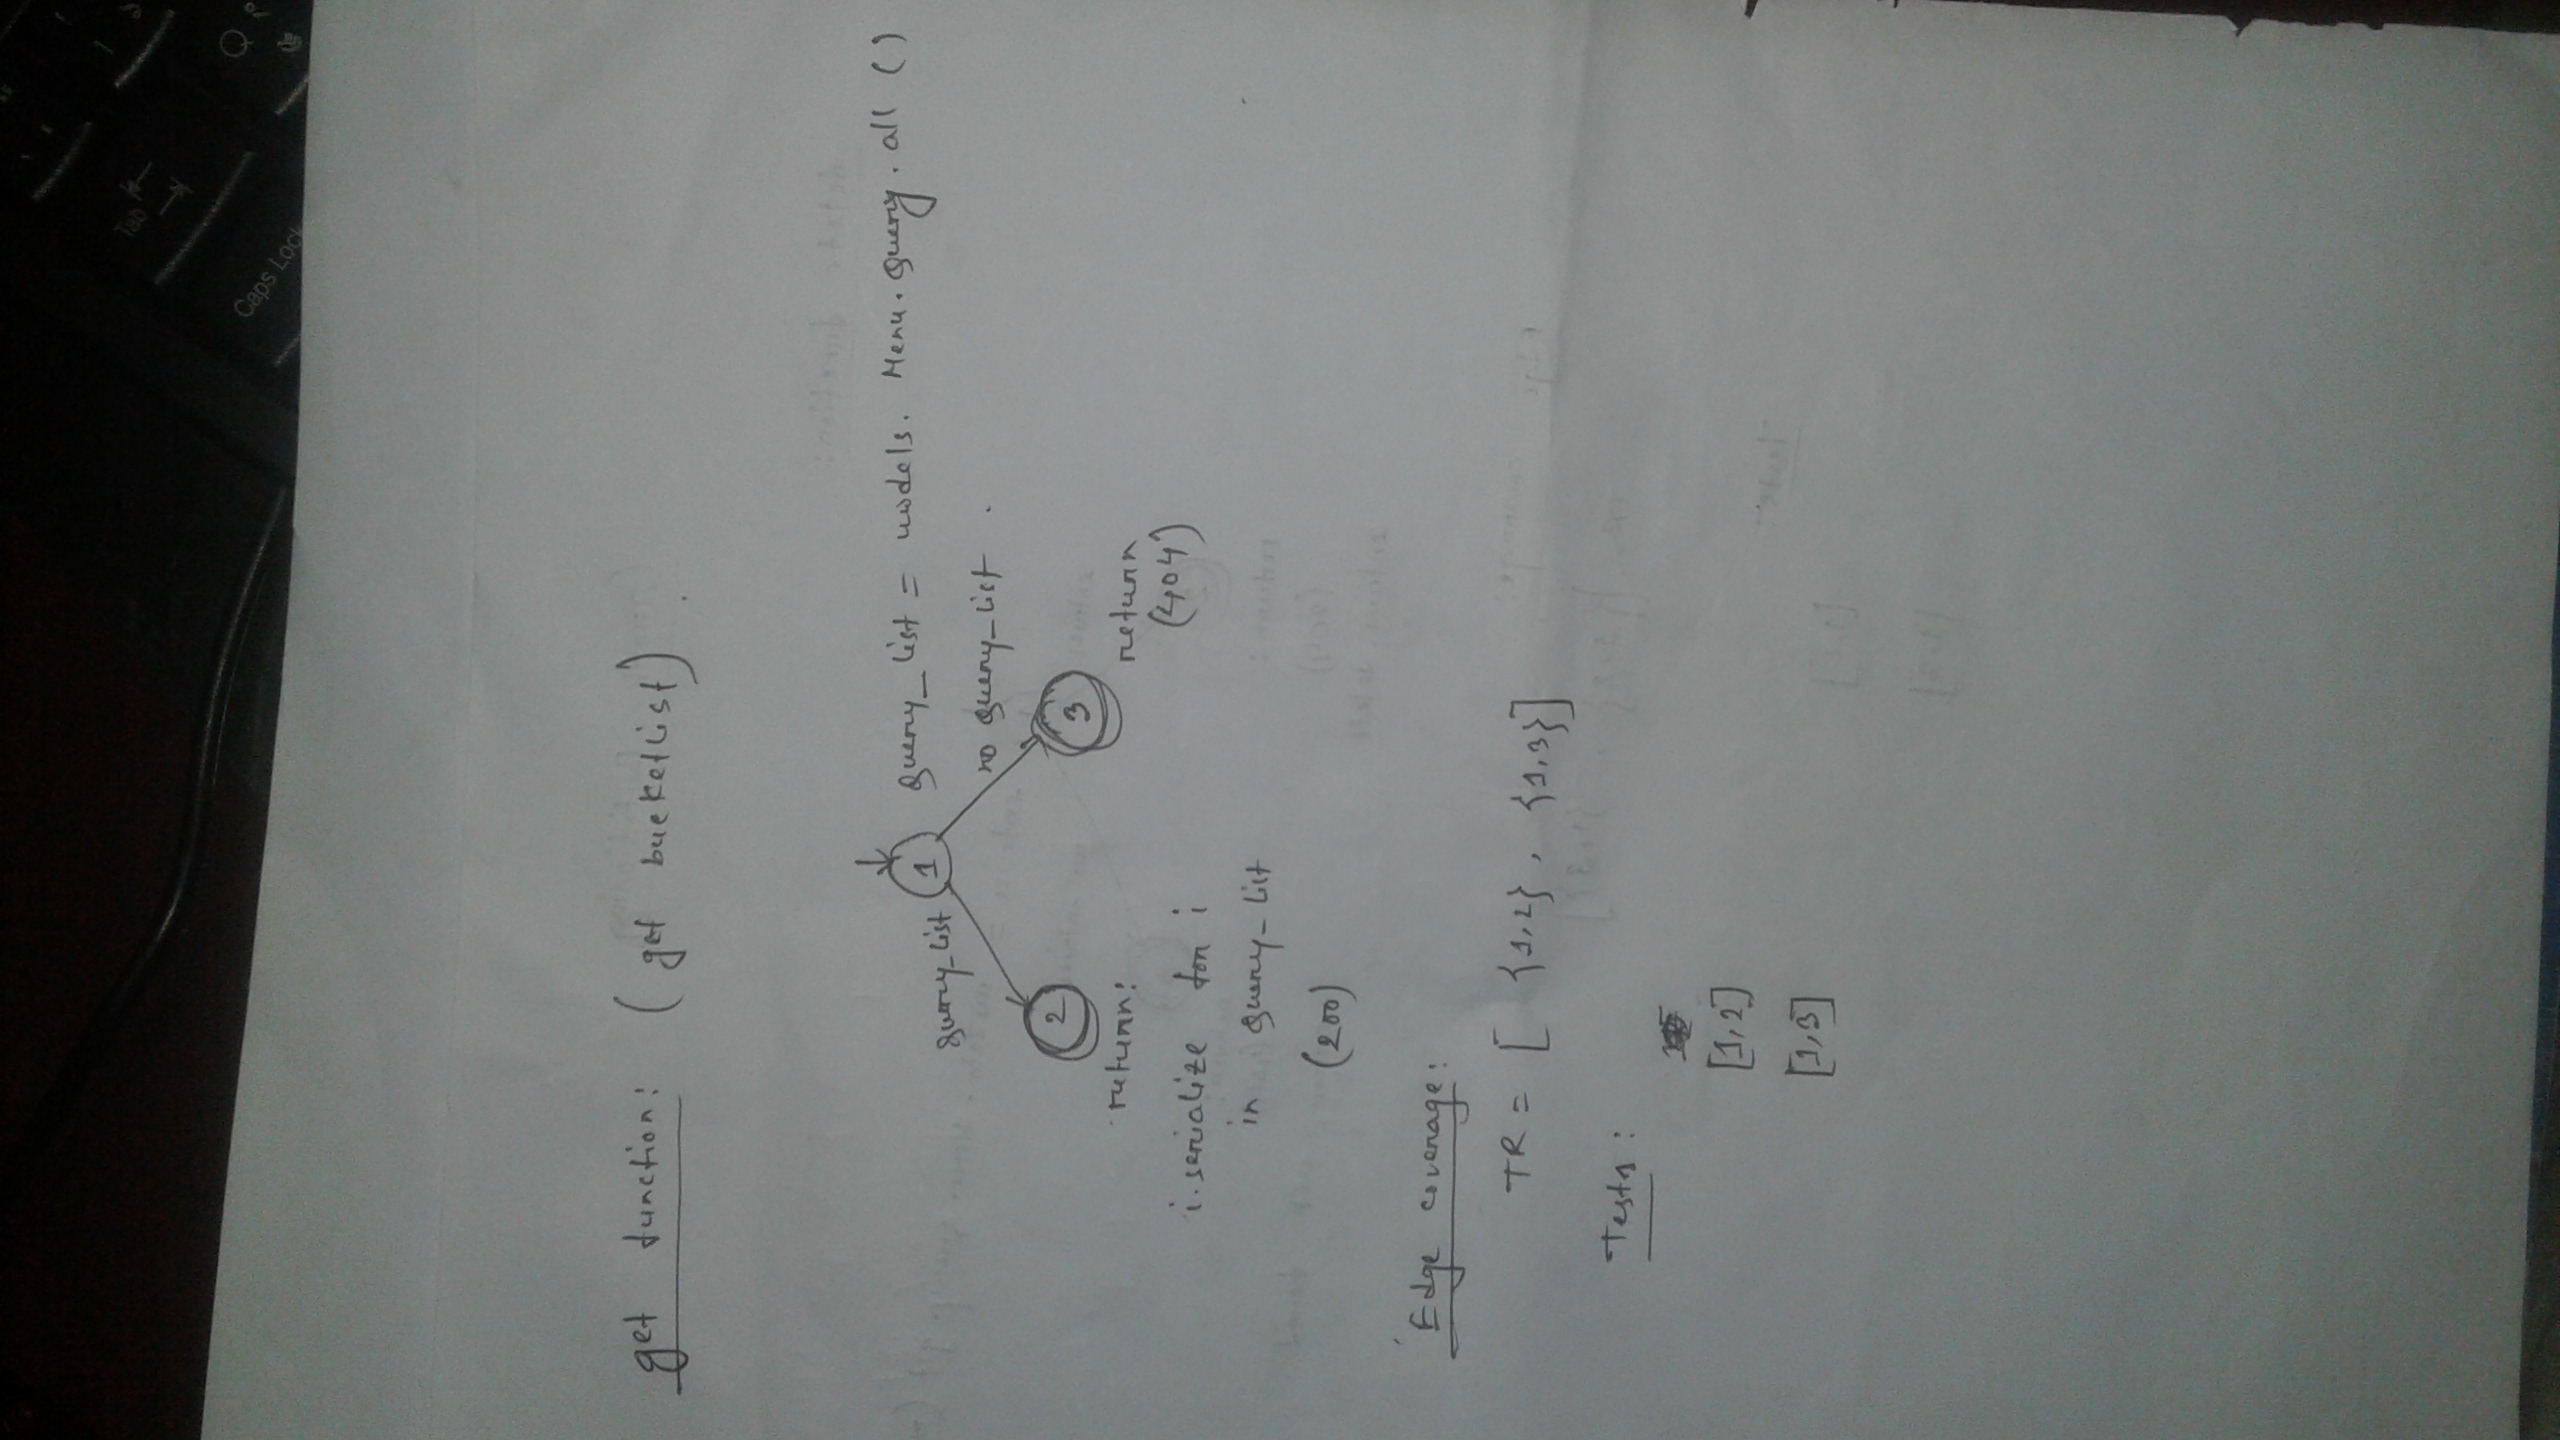 Tab
Caps Lock
Q
get function: (get bucketlist).
1 query_list = models. Menu. query. all ()
query_list
no query_list .
2
3
return:
return
(404)
i. serialize for i
in query_list
(200)
Edge coverage:
TR = [ {1,2} , {1,3}]
Tests:
[1,2]
[1,3]